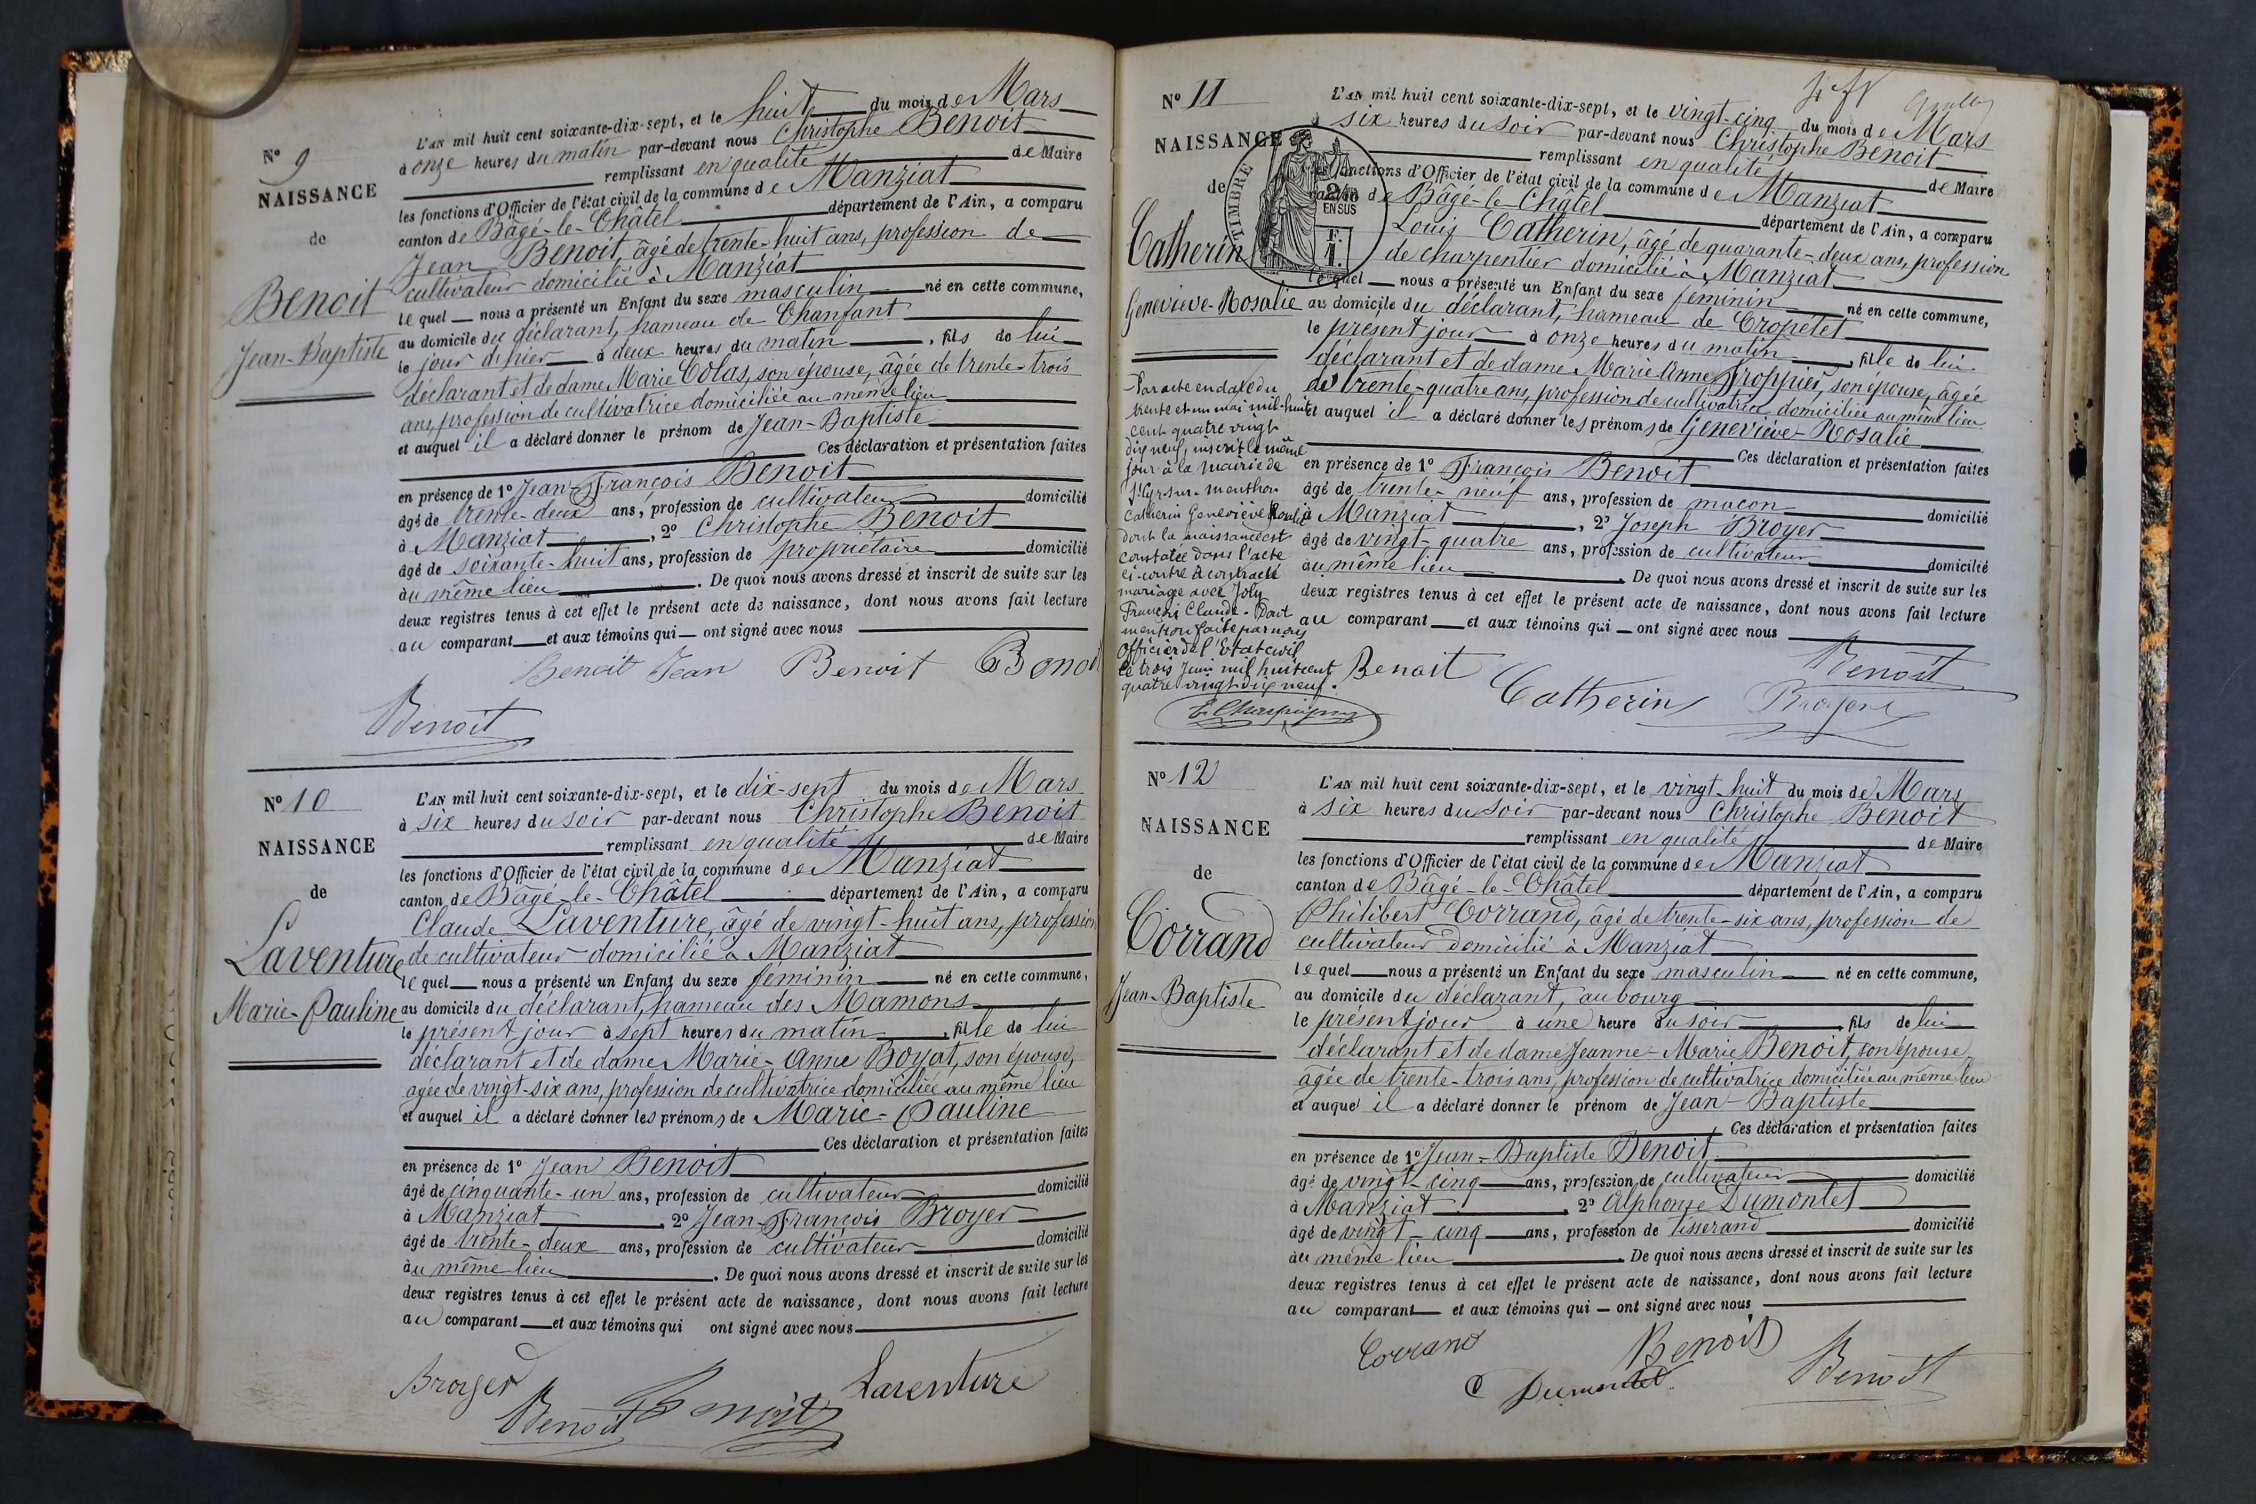 N° 9
NAISSANCE
de
Benoit
Jean-Baptiste
L'AN mil huit cent soixante-dix-sept, et le huit du mois de Mars
à onze heures du matin par-devant nous Christophe Benoit
remplissant en qualité de Maire
les fonctions d'Officier de l'état civil de la commune de Manziat
canton de Bâgé-le-Châtel département de l'Ain, a comparu
Jean Benoit, âgé de trente-huit ans, profession de
cultivateur domicilié à Manziat
lequel nous a présenté un Enfant du sexe masculin né en cette commune,
au domicile du déclarant, hameau de Chanfant
le jour d'hier à deux heures du matin, fils de lui
déclarant et de dame Marie Colas, son épouse, âgée de trente-trois
ans, profession de cultivatrice domiciliée au même lieu
et auquel il a déclaré donner le prénom de Jean-Baptiste
Ces déclaration et présentation faites
en présence de 1° Jean-François Benoit
âgé de trente-deux ans, profession de cultivateur domicilié
à Manziat, 2° Christophe Benoit
âgé de soixante-huit ans, profession de propriétaire domicilié
au même lieu. De quoi nous avons dressé et inscrit de suite sur les
deux registres tenus à cet effet le présent acte de naissance, dont nous avons fait lecture
au comparant et aux témoins qui ont signé avec nous
Benoit Jean Benoit Benoit
Benoit
N° 10
NAISSANCE
de
Laventure
Marie-Pauline
L'AN mil huit cent soixante-dix-sept, et le dix-sept du mois de Mars
à six heures du soir par-devant nous Christophe Benoit
remplissant en qualité de Maire
les fonctions d'Officier de l'état civil de la commune de Manziat
canton de Bâgé-le-Châtel département de l'Ain, a comparu
Claude Laventure, âgé de vingt-huit ans, profession
de cultivateur domicilié à Manziat
lequel nous a présenté un Enfant du sexe féminin né en cette commune,
au domicile du déclarant, hameau des Mamons
le présent jour à sept heures du matin, fille de lui
déclarant et de dame Marie-Anne Boyat, son épouse,
agée de vingt-six ans, profession de cultivatrice domiciliée au même lieu
et auquel il a déclaré donner les prénoms de Marie-Pauline
Ces déclaration et présentation faites
en présence de 1° Jean Benoit
âgé de cinquante-un ans, profession de cultivateur domicilié
à Manziat, 2° Jean-François Broyer
âgé de trente-deux ans, profession de cultivateur domicilié
au même lieu. De quoi nous avons dressé et inscrit de suite sur les
deux registres tenus à cet effet le présent acte de naissance, dont nous avons fait lecture
au comparant et aux témoins qui ont signé avec nous
Broyer Laventure
Benoit Benoit
N° 11
NAISSANCE
de
Catherin
Geneviève-Rosalie
TIMBRE
2/10
EN SUS
F.
1.
L'AN mil huit cent soixante-dix-sept, et le vingt-cinq du mois de Mars
à six heures du soir par-devant nous Christophe Benoit
remplissant en qualité de Maire
les fonctions d'Officier de l'état civil de la commune de Manziat
canton de Bâgé-le-Châtel département de l'Ain, a comparu
Louis Catherin, âgé de quarante-deux ans, profession
de charpentier domicilié à Manziat
lequel nous a présenté un Enfant du sexe féminin né en cette commune,
au domicile du déclarant, hameau de Cropétet
le présent jour à onze heures du matin, fille de lui
déclarant et de dame Marie Anne Froppier, son épouse, âgée
de trente-quatre ans, profession de cultivatrice domiciliée au même lieu
et auquel il a déclaré donner les prénoms de Geneviève-Rosalie
Ces déclaration et présentation faites
en présence de 1° François Benoit
âgé de trente-neuf ans, profession de maçon domicilié
à Manziat, 2° Joseph Broyer
âgé de vingt-quatre ans, profession de cultivateur domicilié
au même lieu. De quoi nous avons dressé et inscrit de suite sur les
deux registres tenus à cet effet le présent acte de naissance, dont nous avons fait lecture
au comparant et aux témoins qui ont signé avec nous
Par acte en date du
trente et un mai mil-huit
cent quatre vingt
dix neuf, inscrit le même
jour à la mairie de
St Cyr-sur-menthon
Catherin Geneviève Rosalie
dont la naissance est
constatée dans l'acte
ci-contre a contracté
mariage avec Joly
François Claude. Dont
mention faite par nous
Officier de l'Etat civil
le trois Juin mil huit cent
quatre vingt dix neuf.
Benoit Benoit
Catherin Broyer
N° 12
NAISSANCE
de
Corrand
Jean-Baptiste
L'AN mil huit cent soixante-dix-sept, et le vingt-huit du mois de Mars
à six heures du soir par-devant nous Christophe Benoit
remplissant en qualité de Maire
les fonctions d'Officier de l'état civil de la commune de Manziat
canton de Bâgé-le-Châtel département de l'Ain, a comparu
Philibert Corrand, âgé de trente-six ans, profession de
cultivateur domicilié à Manziat
lequel nous a présenté un Enfant du sexe masculin né en cette commune,
au domicile du déclarant, au bourg
le présent jour à une heure du soir, fils de lui
déclarant et de dame Jeanne-Marie Benoit, son épouse
agée de trente-trois ans, profession de cultivatrice domiciliée au même lieu
et auquel il a déclaré donner le prénom de Jean-Baptiste
Ces déclaration et présentation faites
en présence de 1° Jean-Baptiste Benoit
âgé de vingt-cinq ans, profession de cultivateur domicilié
à Manziat, 2° Alphonse Dumontet
âgé de vingt-cinq ans, profession de tisserand domicilié
au même lieu. De quoi nous avons dressé et inscrit de suite sur les
deux registres tenus à cet effet le présent acte de naissance, dont nous avons fait lecture
au comparant et aux témoins qui ont signé avec nous
Corrand Benoit
Dumontet Benoit